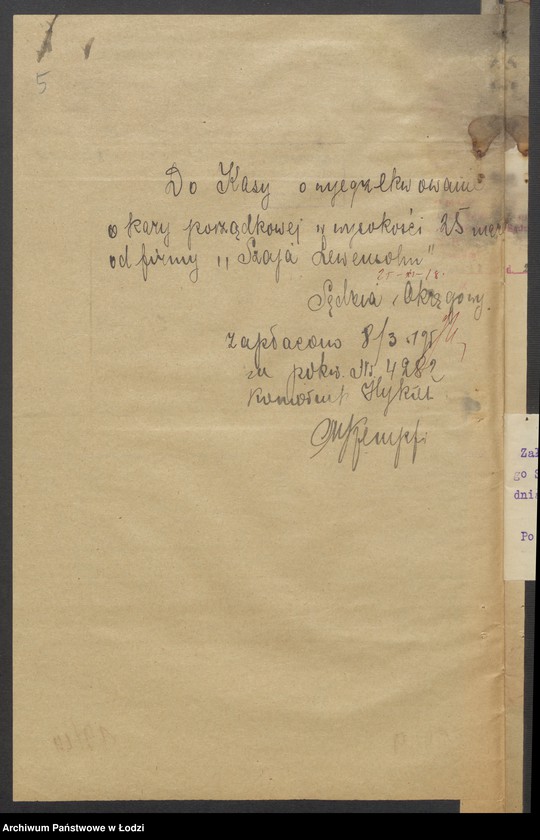 5
Do Kasy o wyegzekwowanie
o kary porządkowej w wysokości 25 mar
od firmy „Szaja Lewensohn"
Sędzia Okręgowy
Zapłacono 8/3 19
za pokw. Nr. 4282
Zak
go S
dnia
Po
Archiwum Państwowe w Łodzi